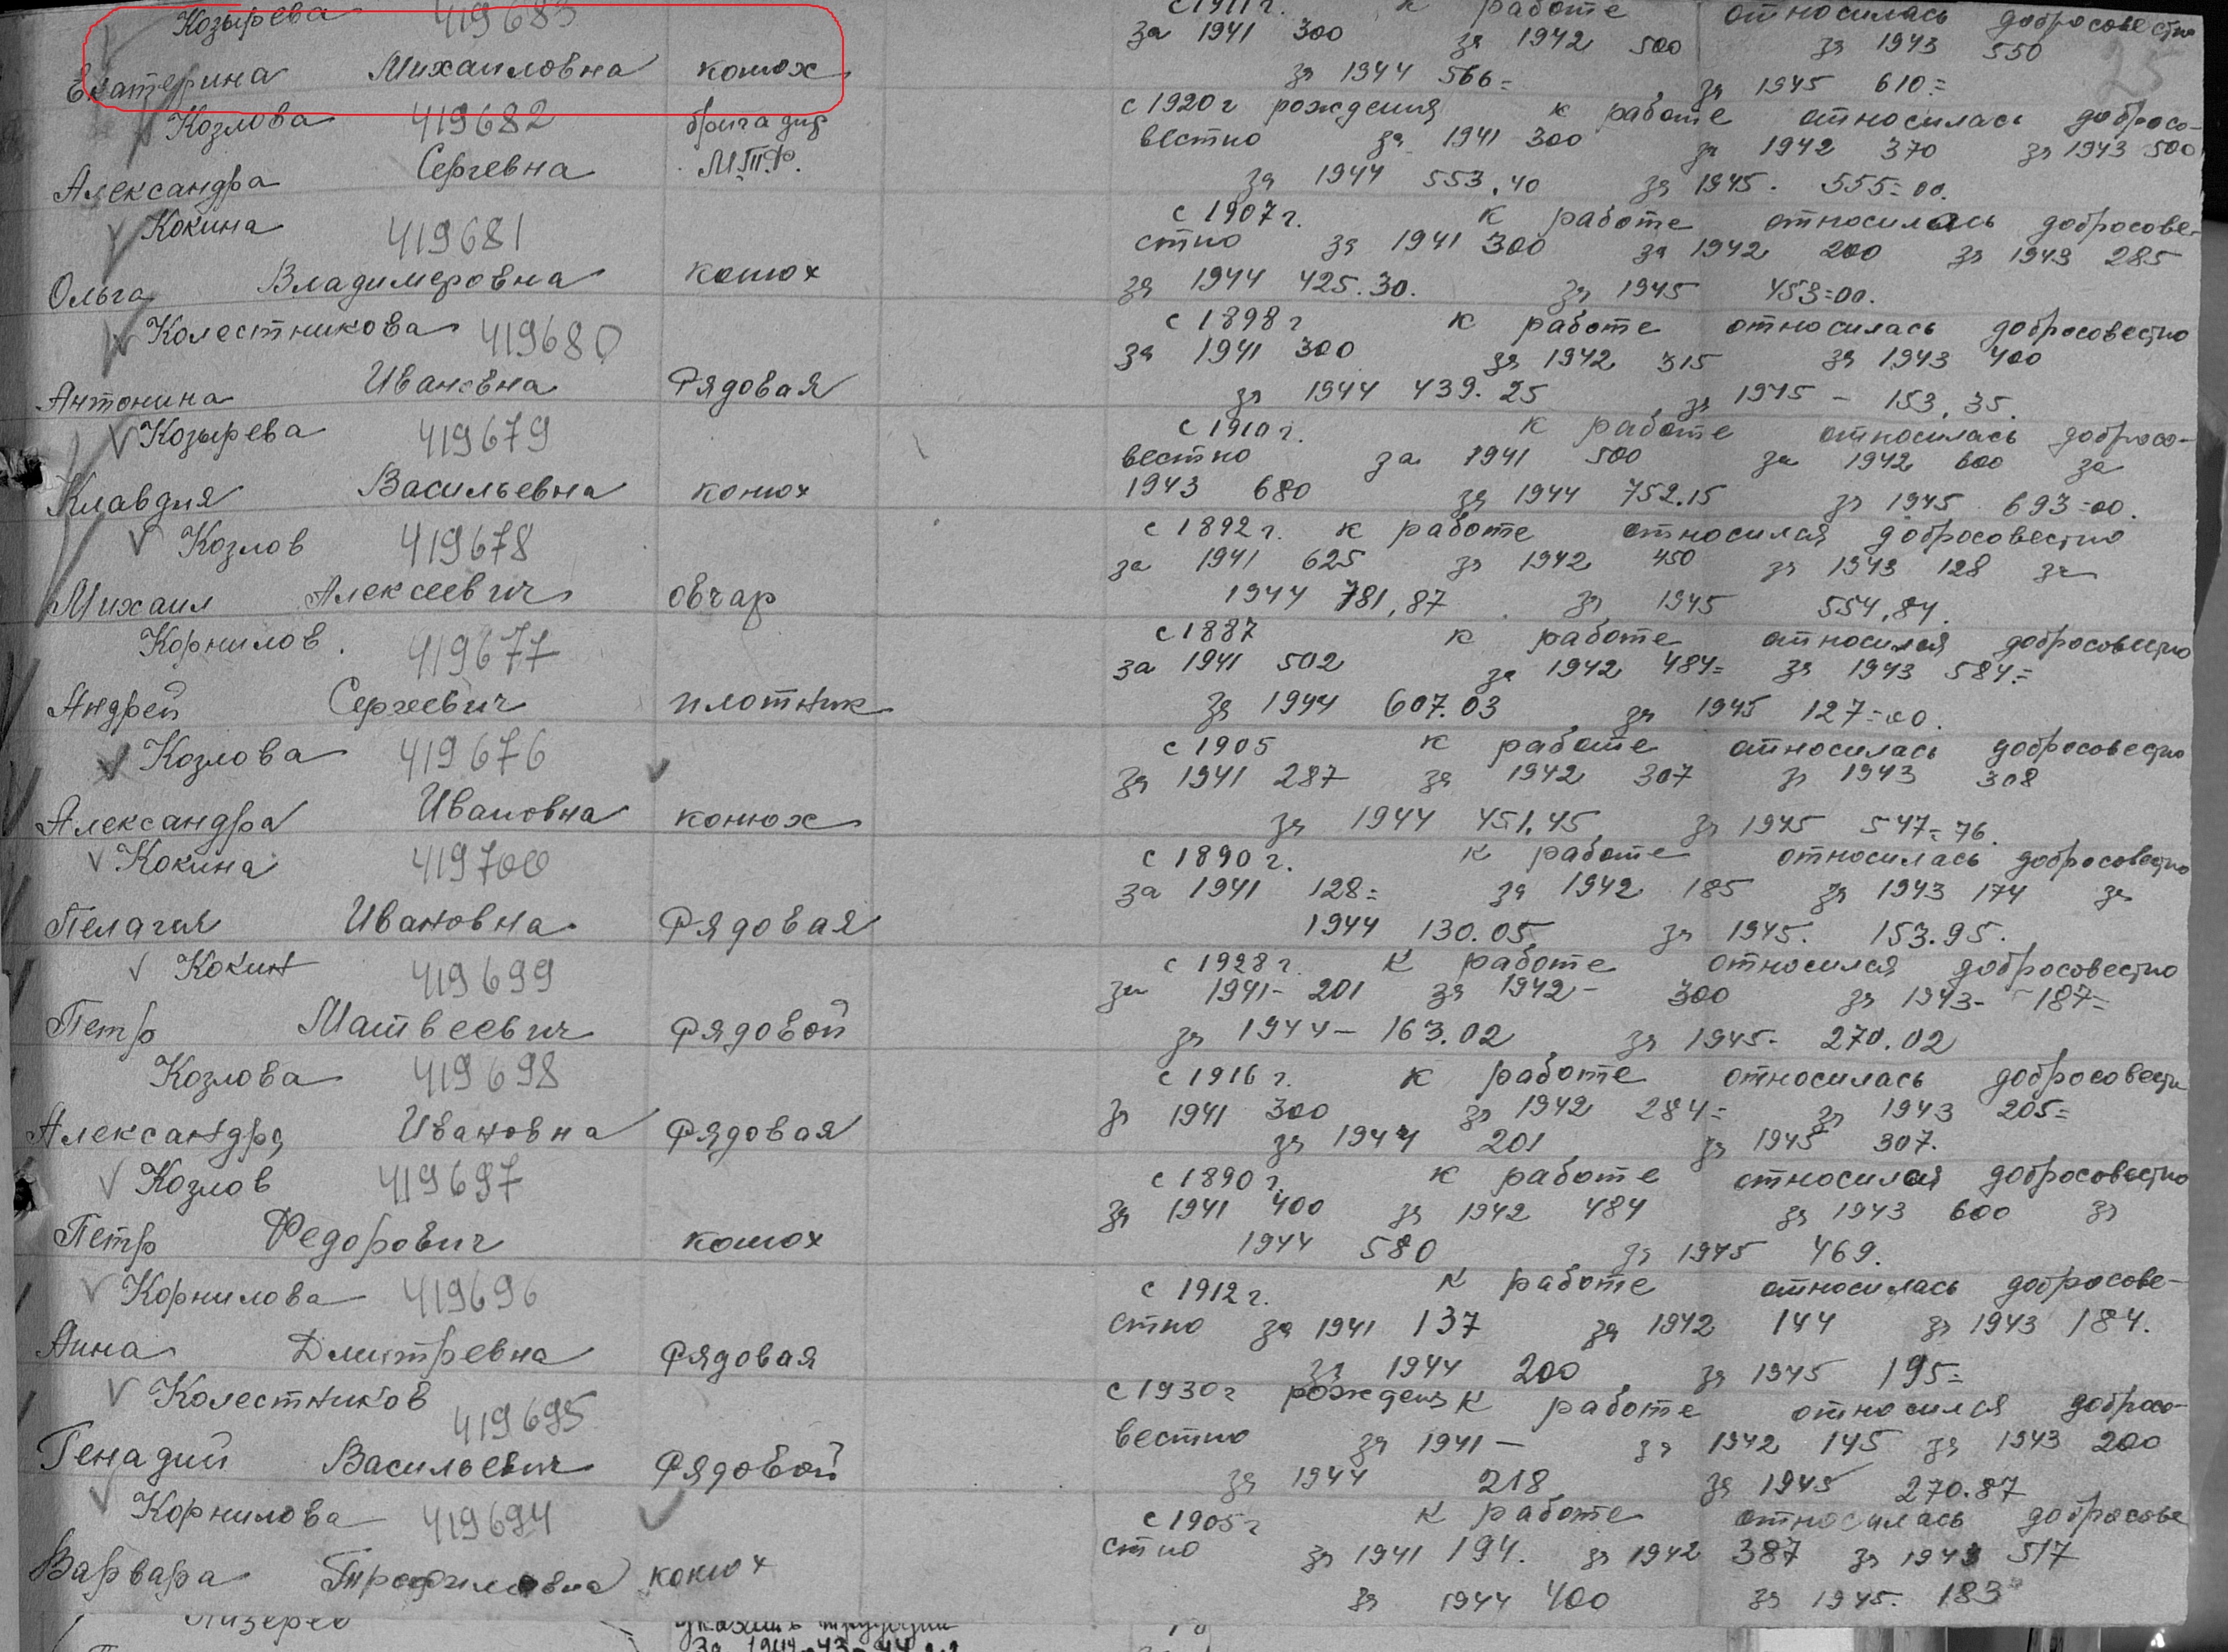 Козырева 419683 с 1911 г. к работе относилась добросовестно
за 1941 300 за 1942 500 за 1943 550
Екатерина Михаиловна конюх за 1944 566= за 1945 610=
25
Козлова 419682 бригадир с 1920 г рождения к работе относилась добросо-
вестно за 1941 300 за 1942 370 за 1943 500
Александра Сергевна М.Т.Ф. за 1944 553,40 за 1945. 555=00.
Кокина 419681 с 1907 г. к работе относилась добросове-
стно за 1941 300 за 1942 200 за 1943 285
Ольга Владимеровна конюх за 1944 425.30. за 1945 453=00.
Колестникова 419680 с 1898 г к работе относилась добросовестно
за 1941 300 за 1942 315 за 1943 400
Антонина Ивановна Рядовая за 1944 439.25 за 1945 - 153,35.
Козырева 419679 с 1910 г. к работе относилась добросо-
вестно за 1941 500 за 1942 600 за
Клавдия Васильевна конюх 1943 680 за 1944 752.15 за 1945 693=00.
Козлов 419678 с 1892 г. к работе относился добросовестно
за 1941 625 за 1942 450 за 1943 128 за
Михаил Алексеевич овчар 1944 781,87 за 1945 554,84.
Корнилов. 419677 с 1887 к работе относился добросовестно
за 1941 502 за 1942 484= за 1943 584=
Андрей Сергеевич плотник за 1944 607.03 за 1945 127=00.
Козлова 419676 с 1905 к работе относилась добросовестно
за 1941 287 за 1942 307 за 1943 308
Александра Ивановна конюх за 1944 451,45 за 1945 547=76.
Кокина 419700 с 1890 г. к работе относилась добросовестно
за 1941 128= за 1942 185 за 1943 174 за
Пелагия Ивановна Рядовая 1944 130.05 за 1945. 153.95.
Кокин 419699 с 1928 г. к работе относился добросовестно
за 1941- 201 за 1942- 300 за 1943- 187=
Петр Матвеевич Рядовой за 1944- 163.02 за 1945- 270.02
Козлова 419698 с 1916 г. к работе относилась добросовестн
за 1941 300 за 1942 284= за 1943 205=
Александра Ивановна Рядовая за 1944 201 за 1945 307.
Козлов 419697 с 1890 г. к работе относился добросовестно
за 1941 400 за 1942 484 за 1943 600 за
Петр Федорович конюх 1944 580 за 1945 469.
Корнилова 419696 с 1912 г. к работе относилась добросове-
стно за 1941 137 за 1942 144 за 1943 184.
Анна Дмитревна Рядовая за 1944 200 за 1945 195=
Колестников 419695 с 1930 г рождения к работе относился добросо-
вестно за 1941 - за 1942 145 за 1943 200
Генадий Васильевич Рядовой за 1944 218 за 1945 270.87
Корнилова 419694 с 1905 г к работе относилась добросове
стно за 1941 194. за 1942 387 за 1943 517
Варвара конюх за 1944 400 за 1945. 183